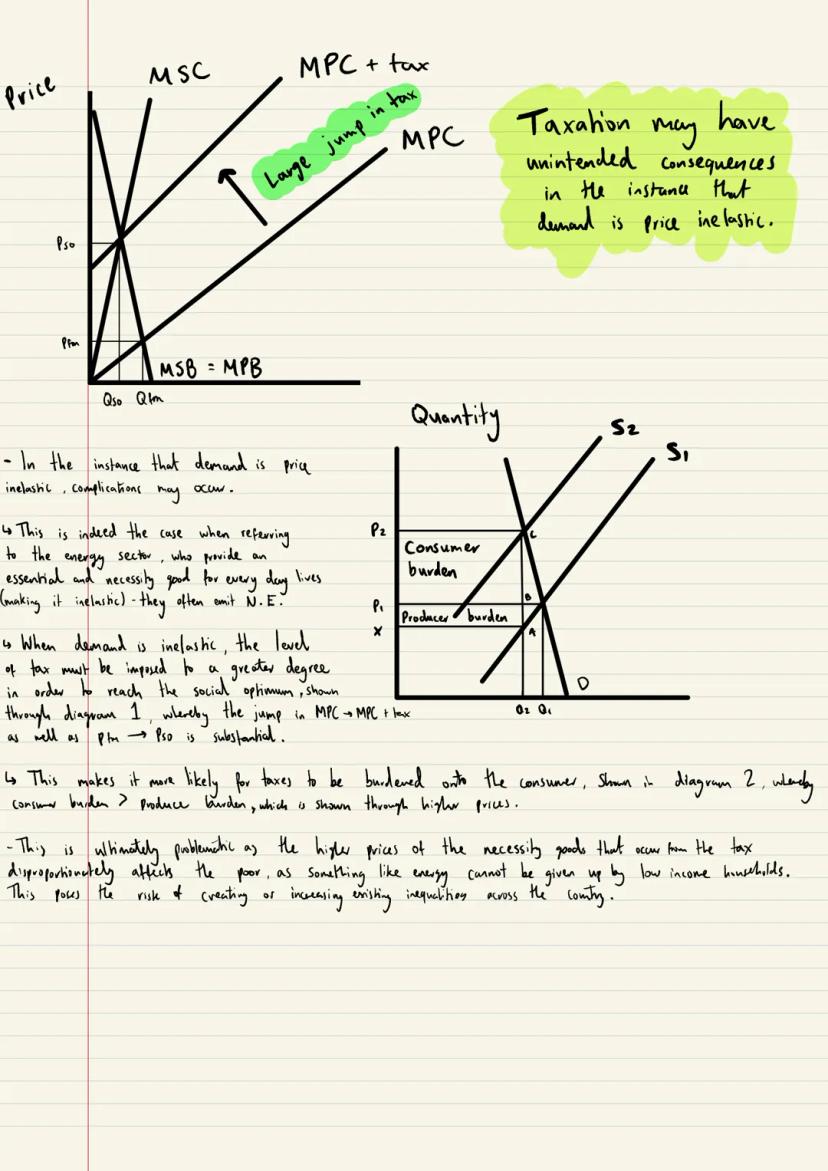 Price
MSC
MPC + tax
Large jump in tax
MPC
Taxation may have
unintended consequences
in the instance that
demand is price inelastic.
Pso
Pfm
MSB = MPB
Qso Qfm
Quantity
- In the instance that demand is price
inelastic, complications may occur.
↳ This is indeed the case when referring
to the energy sector, who provide an
essential and necessity good for every day lives
(making it inelastic) - they often emit N.E.
↳ When demand is inelastic, the level
of tax must be imposed to a greater degree
in order to reach the social optimum, shown
through diagram 1, whereby the jump in MPC → MPC + tax
as well as Pfm → Pso is substantial.
S2
S1
P2
C
Consumer
burden
P1
B
Producer burden
X
A
D
Q2 Q1
↳ This makes it more likely for taxes to be burdened onto the consumer, shown in diagram 2, whereby
consumer burden > produce burden, which is shown through higher prices.
- This is ultimately problematic as the higher prices of the necessity goods that occur from the tax
disproportionately affects the poor, as something like energy cannot be given up by low income households.
This poses the risk of creating or increasing existing inequalities across the country.